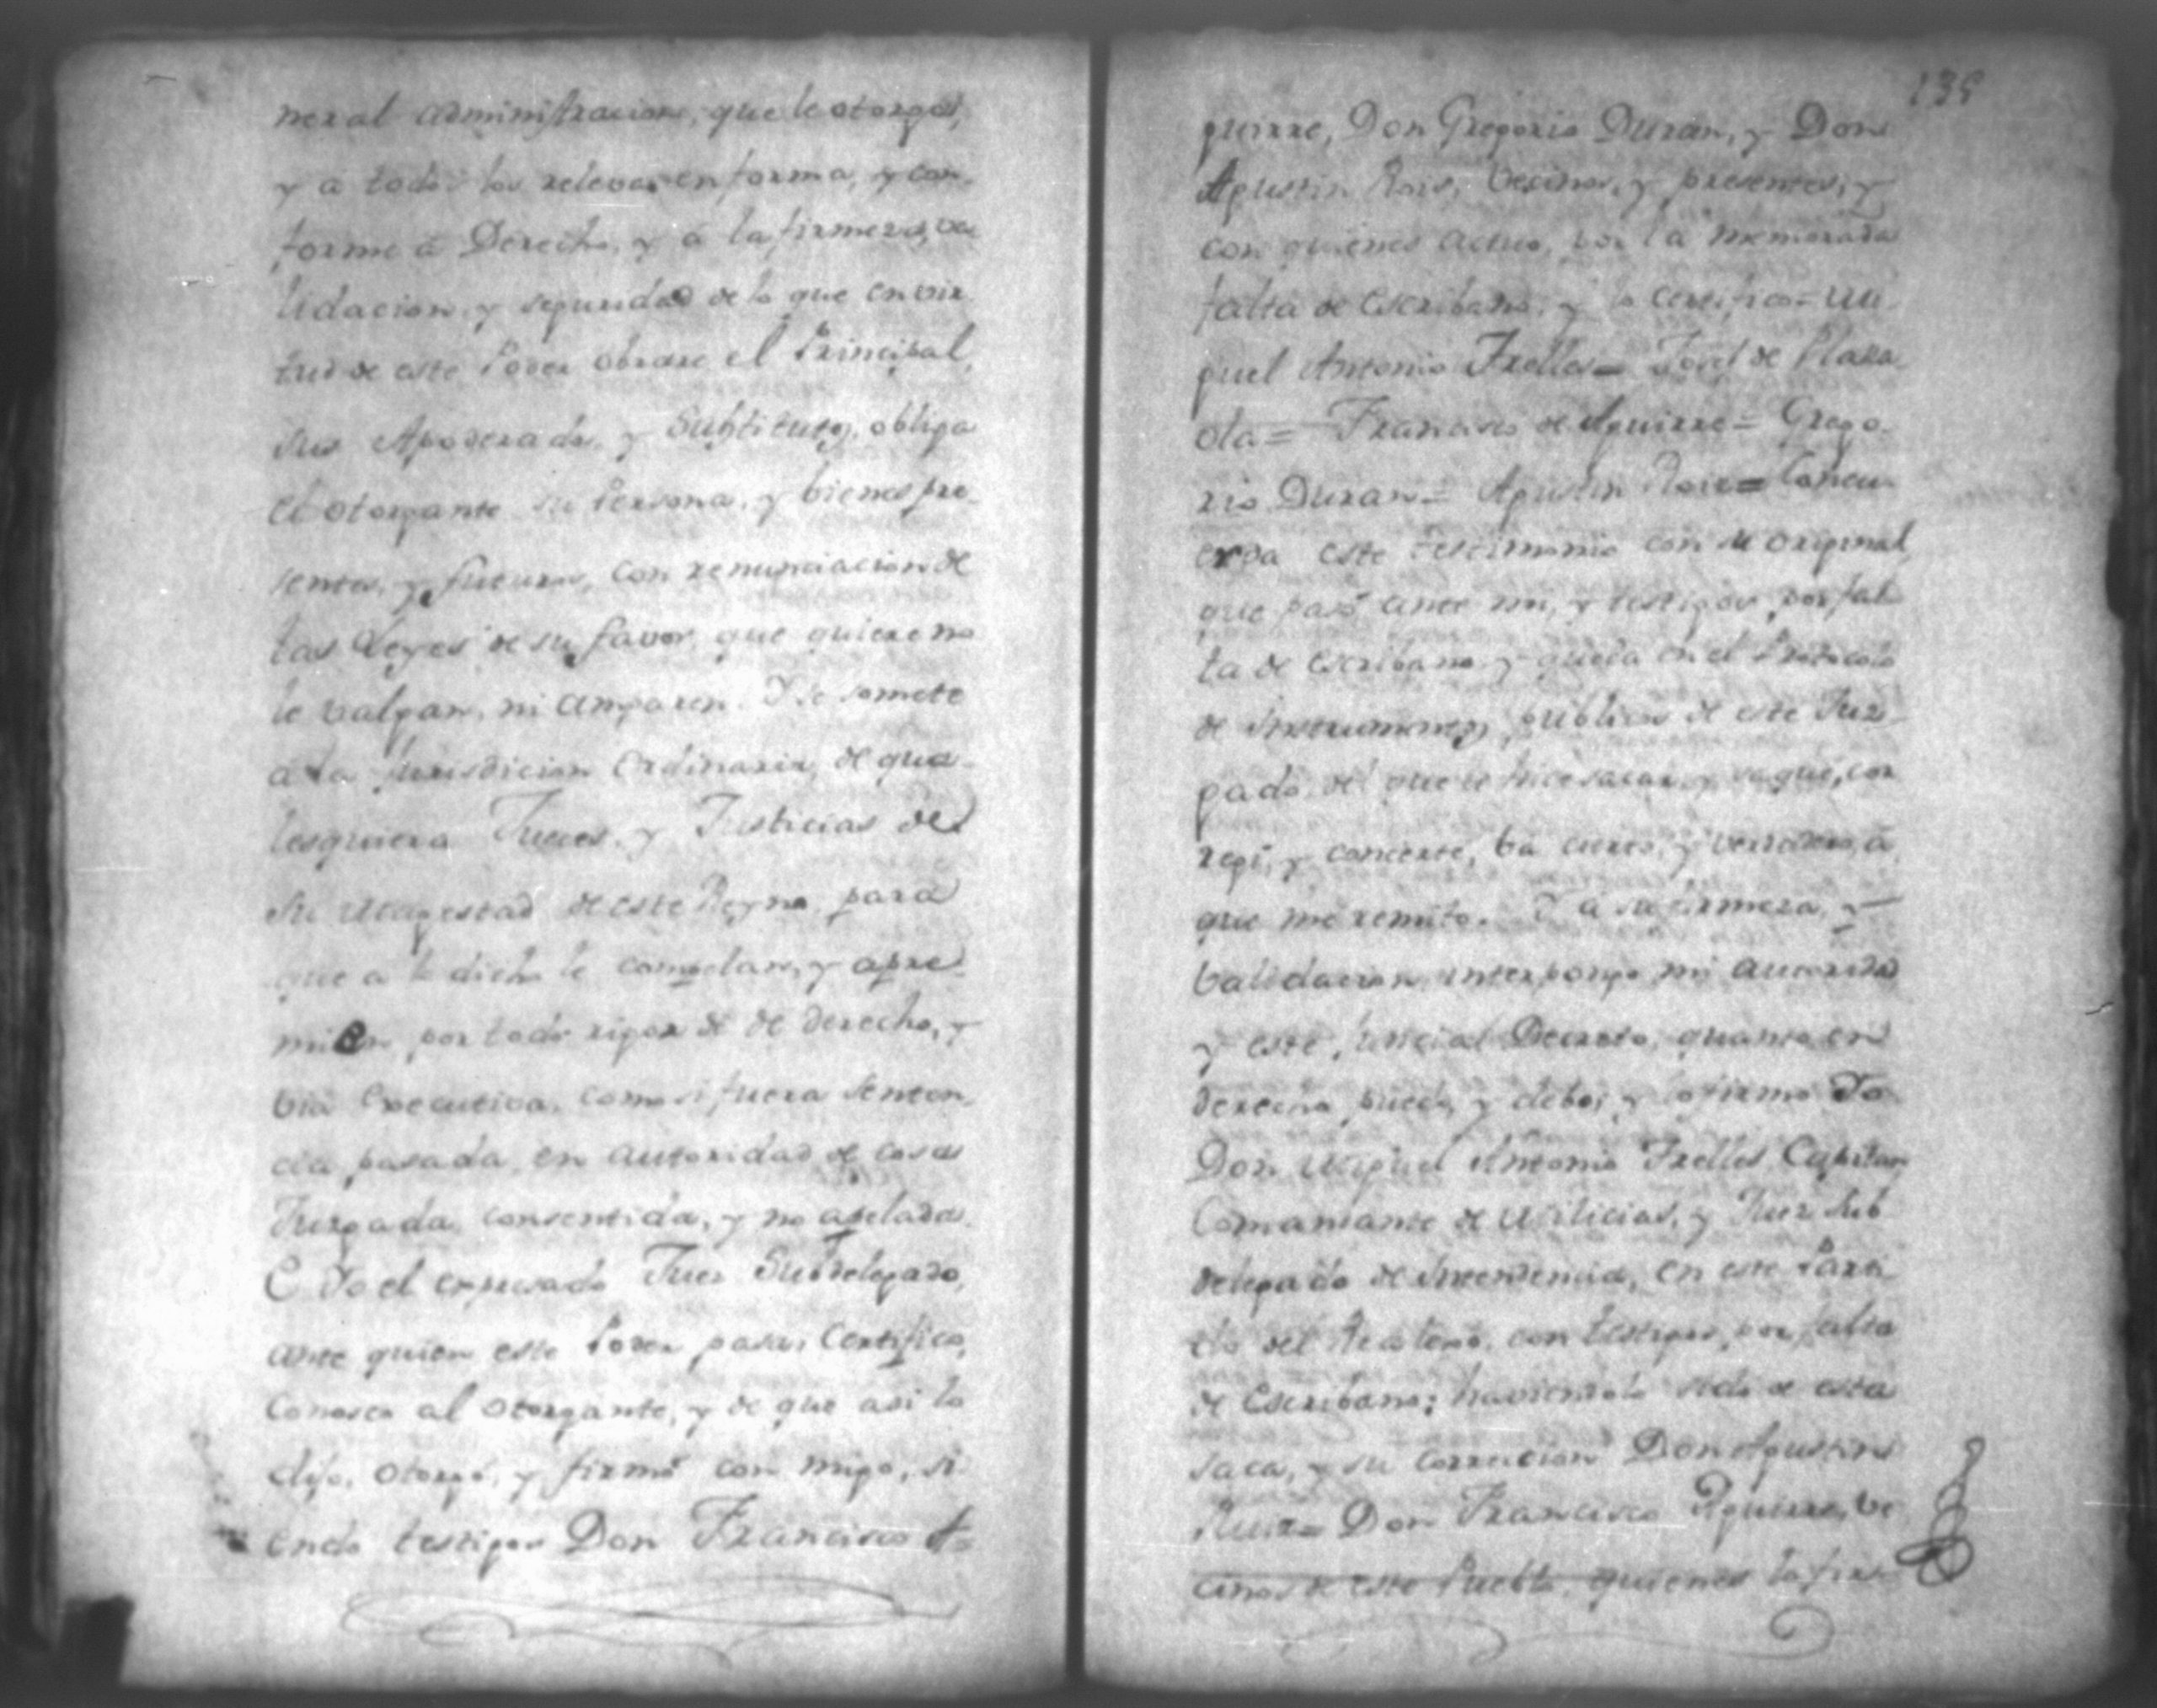 neral administracion, que le otorga,
y a todos los relevar en forma, y con-
forme á Derecho, y á la firmeza, va
lidacion, y seguridad de lo que en vir
tud de este Poder obrare el Principal,
sus Apoderados, y Substitutos, obliga
el otorgante su Persona, y bienes pre-
sentes, y futuros, con renunciacion de
las Leyes de su favor, que quiere no
le valgan, ni amparen. Y se somete
á la jurisdicion Ordinaria, de qua-
lesquiera Jueces, y Justicias de
Su Magestad de este Reyno, para
que a lo dicho le compelan, y apre-
mien por todo rigor de de derecho, y
via Executiva, como si fuera senten-
cia pasada en autoridad de cosa
Juzgada, consentida, y no apelada.
E Yo el expresado Juez Subdelegado,
ante quien este Poder pasa, Certifico,
Conosco al otorgante, y de que asi lo
dijo, otorgó, y firmó con migo, si
endo testigos Don Francisco A-
135
guirre, Don Gregorio Duran, y Don
Agustin Rois, Vecinos, y presentes, y
con quienes actuo, por la memorada
falta de Escribano, y lo certifico= Mi
guel Antonio Trelles= José de Plaza
ola= Francisco de Aguirre= Grego-
rio Duran= Agustin Roiz= Concu-
erda este testimonio con su original,
que pasó ante mi, y testigos, por fal-
ta de Escribano, y queda en el Protocolo
de Instrumentos publicos de este Juz-
gado, del que le hice sacar, y saqué, cor
regi, y concerté, va cierto, y verdadero, á
que me remito. Y a su firmeza, y
validacion, interpongo mi autoridad
y este, Judicial Decreto, quanto en
derecho puedo, y debo; y lo firmo Yo
Don Miguel Antonio Trelles Capitan
Comandante de Milicias, y Juez Sub
delegado de Intendencia, en este Parti-
do del con testigos, por falta
de Escribano; haviendolo sido de esta
saca, y su correccion Don Agustin
Ruiz= Don Francisco Aguirre, ve
cinos de este Pueblo, quienes lo fir-